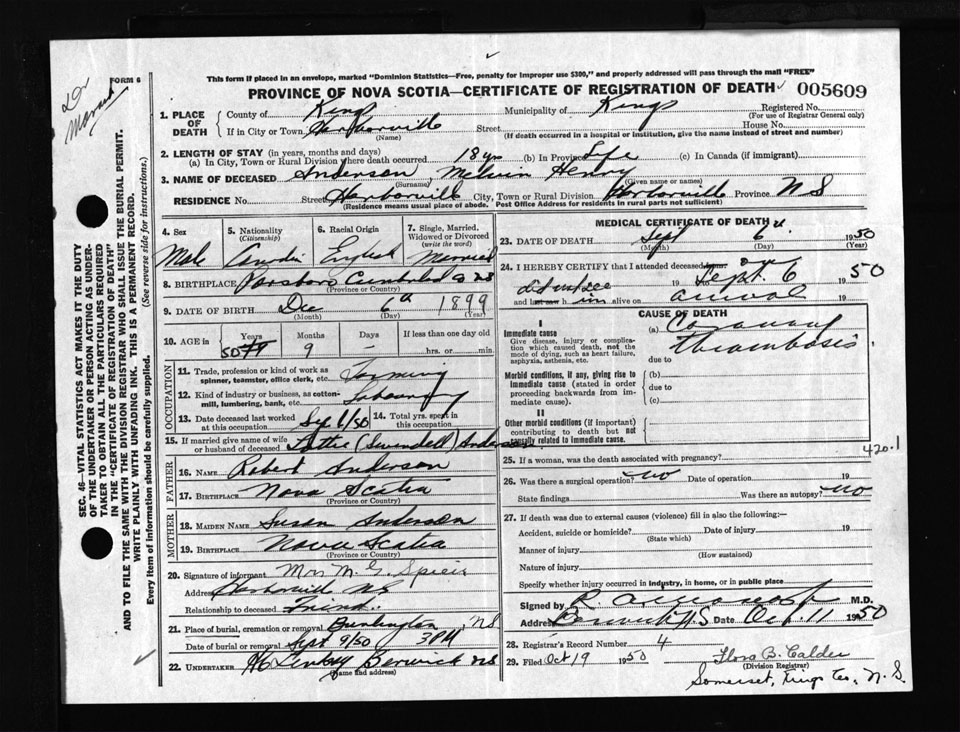 This form if placed in an envelope, marked "Dominion Statistics—Free, penalty for improper use $300," and properly addressed will pass through the mail "FREE"
FORM 6
PROVINCE OF NOVA SCOTIA—CERTIFICATE OF REGISTRATION OF DEATH 005609
1. PLACE OF DEATH County of Kings Municipality of Kings Registered No.
(For use of Registrar General only)
If in City or Town Harborville Street House No.
(Name) (If death occurred in a hospital or institution, give the name instead of street and number)
2. LENGTH OF STAY (in years, months and days)
(a) In City, Town or Rural Division where death occurred 18 yrs (b) In Province Life (c) In Canada (if immigrant)
3. NAME OF DECEASED Anderson, Melvin Henry
(Surname) (Given name or names)
RESIDENCE No. Street Harborville City, Town or Rural Division Harborville Province N S
(Residence means usual place of abode. Post Office Address for residents in rural parts not sufficient)
4. Sex 5. Nationality (Citizenship) 6. Racial Origin 7. Single, Married, Widowed or Divorced (write the word)
Male English Married
8. BIRTHPLACE Parsboro Cumberland N S
(Province or Country)
9. DATE OF BIRTH Dec 6th 1899
(Month) (Day)
10. AGE in Years Months Days If less than one day old
50 9 - hrs. or min.
OCCUPATION
11. Trade, profession or kind of work as spinner, teamster, office clerk, etc. Farming
12. Kind of industry or business, as cotton-mill, lumbering, bank, etc.
13. Date deceased last worked at this occupation Sep 6/50 14. Total yrs. spent in this occupation
15. If married give name of wife or husband of deceased Lottie (Swindell) Anderson
FATHER
16. NAME Robert Anderson
17. BIRTHPLACE Nova Scotia
(Province or Country)
MOTHER
18. MAIDEN NAME Susan Anderson
19. BIRTHPLACE Nova Scotia
(Province or Country)
20. Signature of informant Mrs M. G. Spicer
Address Harborville NS
Relationship to deceased Friend.
21. Place of burial, cremation or removal Burlington, NS
Date of burial or removal Sept 9/50 3 PM
22. UNDERTAKER Berwick NS
(Name and address)
MEDICAL CERTIFICATE OF DEATH
23. DATE OF DEATH Sept 6th 1950
(Month) (Day) (Year)
24. I HEREBY CERTIFY that I attended deceased from 19 to Sept. 6 1950
and last saw h im alive on arrival 19
CAUSE OF DEATH
I
Immediate cause (a) Coronary Thrombosis
Give disease, injury or complication which caused death, not the mode of dying, such as heart failure, asphyxia, asthenia, etc. due to
Morbid conditions, if any, giving rise to immediate cause (stated in order proceeding backwards from immediate cause). (b)
due to
(c)
II
Other morbid conditions (if important) contributing to death but not causally related to immediate cause.
420.1
25. If a woman, was the death associated with pregnancy?
26. Was there a surgical operation? no Date of operation 19
State findings Was there an autopsy? no
27. If death was due to external causes (violence) fill in also the following:—
Accident, suicide or homicide? Date of injury 19
(State which)
Manner of injury
(How sustained)
Nature of injury
Specify whether injury occurred in industry, in home, or in public place
Signed by M.D.
Address Berwick N.S. Date Oct. 11 1950
28. Registrar's Record Number 4
29. Filed Oct 19 1950 Flora B. Calder
(Division Registrar)
Somerset, Kings Co., N. S.
SEC. 46—VITAL STATISTICS ACT MAKES IT THE DUTY
OF THE UNDERTAKER OR PERSON ACTING AS UNDER-
TAKER TO OBTAIN ALL THE PARTICULARS REQUIRED
IN THE "CERTIFICATE OF REGISTRATION OF DEATH"
AND TO FILE THE SAME WITH THE DIVISION REGISTRAR WHO SHALL ISSUE THE BURIAL PERMIT.
WRITE PLAINLY WITH UNFADING INK. THIS IS A PERMANENT RECORD.
Every item of information should be carefully supplied. (See reverse side for instructions.)